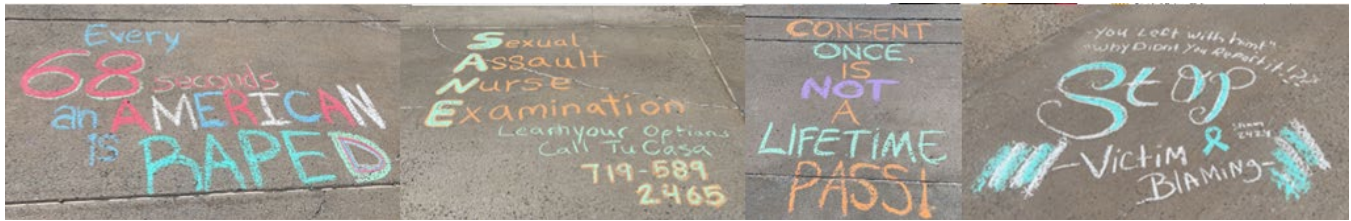 Every
68 seconds
an AMERICAN
is RAPED
Sexual
Assault
Nurse
Examination
Learn your Options
Call Tu Casa
719-589
2465
CONSENT
ONCE,
IS
NOT
A
LIFETIME
PASS!
"You Left with him!"
"Why Didn't You Report it!?"
STOP
-VICTIM
BLAMING-